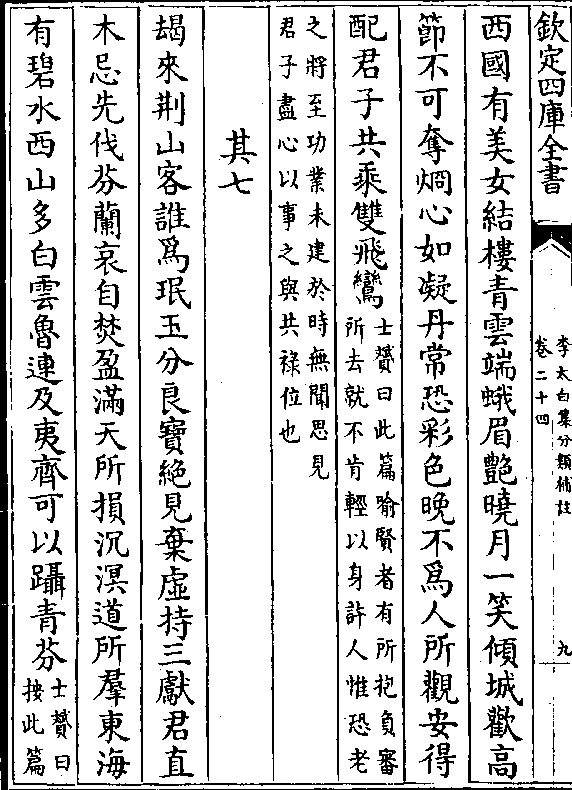 欽定四庫全書
李太白集分類補註
卷二十四
九
西國有美女結樓青雲端蛾眉艷曉月一笑傾城歡高
節不可奪烱心如凝丹常恐彩色晚不爲人所觀安得
配君子共乘雙飛鸞
士贇曰此篇喻賢者有所抱負審
所去就不肯輕以身許人惟恐老
之將至功業未建於時無聞思見
君子盡心以事之與共祿位也
其七
朅來荆山客誰爲珉玉分良寶絶見棄虛持三獻君直
木忌先伐芬蘭哀自焚盈滿天所損沉溟道所羣東海
有碧水西山多白雲魯連及夷齊可以躡青芬
士贇曰
按此篇